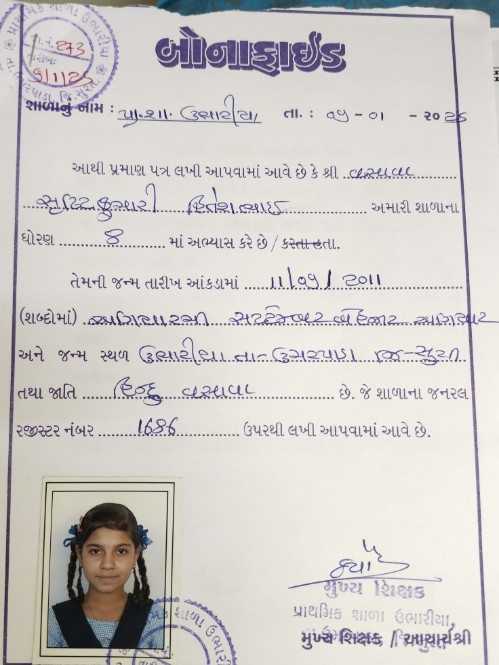 પ્રાથમિક શાળા ઉભારીયા
જા.નં. 273
તારીખ: 9/1/25
તા.ઉમરપાડા, જિ.સુરત
બોનાફાઇડ
શાળાનું નામ : પ્રા. શા. ઉભારીયા તા. : ૦૯ - ૦૧ - ૨૦૨૬
આથી પ્રમાણ પત્ર લખી આપવામાં આવે છે કે શ્રી વસાવા
સૃષ્ટિકુમારી હિતેશભાઇ અમારી શાળાના
ધોરણ 8 માં અભ્યાસ કરે છે / કરતા હતા.
તેમની જન્મ તારીખ આંકડામાં 11/09/2011
(શબ્દોમાં) અગિયારમી સપ્ટેમ્બર બે હજાર અગિયાર
અને જન્મ સ્થળ ઉભારીયા તા- ઉમરપાડા જિ-સુરત
તથા જાતિ હિન્દુ વસાવા છે. જે શાળાના જનરલ
રજીસ્ટર નંબર 1686 ઉપરથી લખી આપવામાં આવે છે.
મુખ્ય શિક્ષક
પ્રાથમિક શાળા ઉભારીયા,
મુખ્ય શિક્ષક / આચાર્યશ્રી